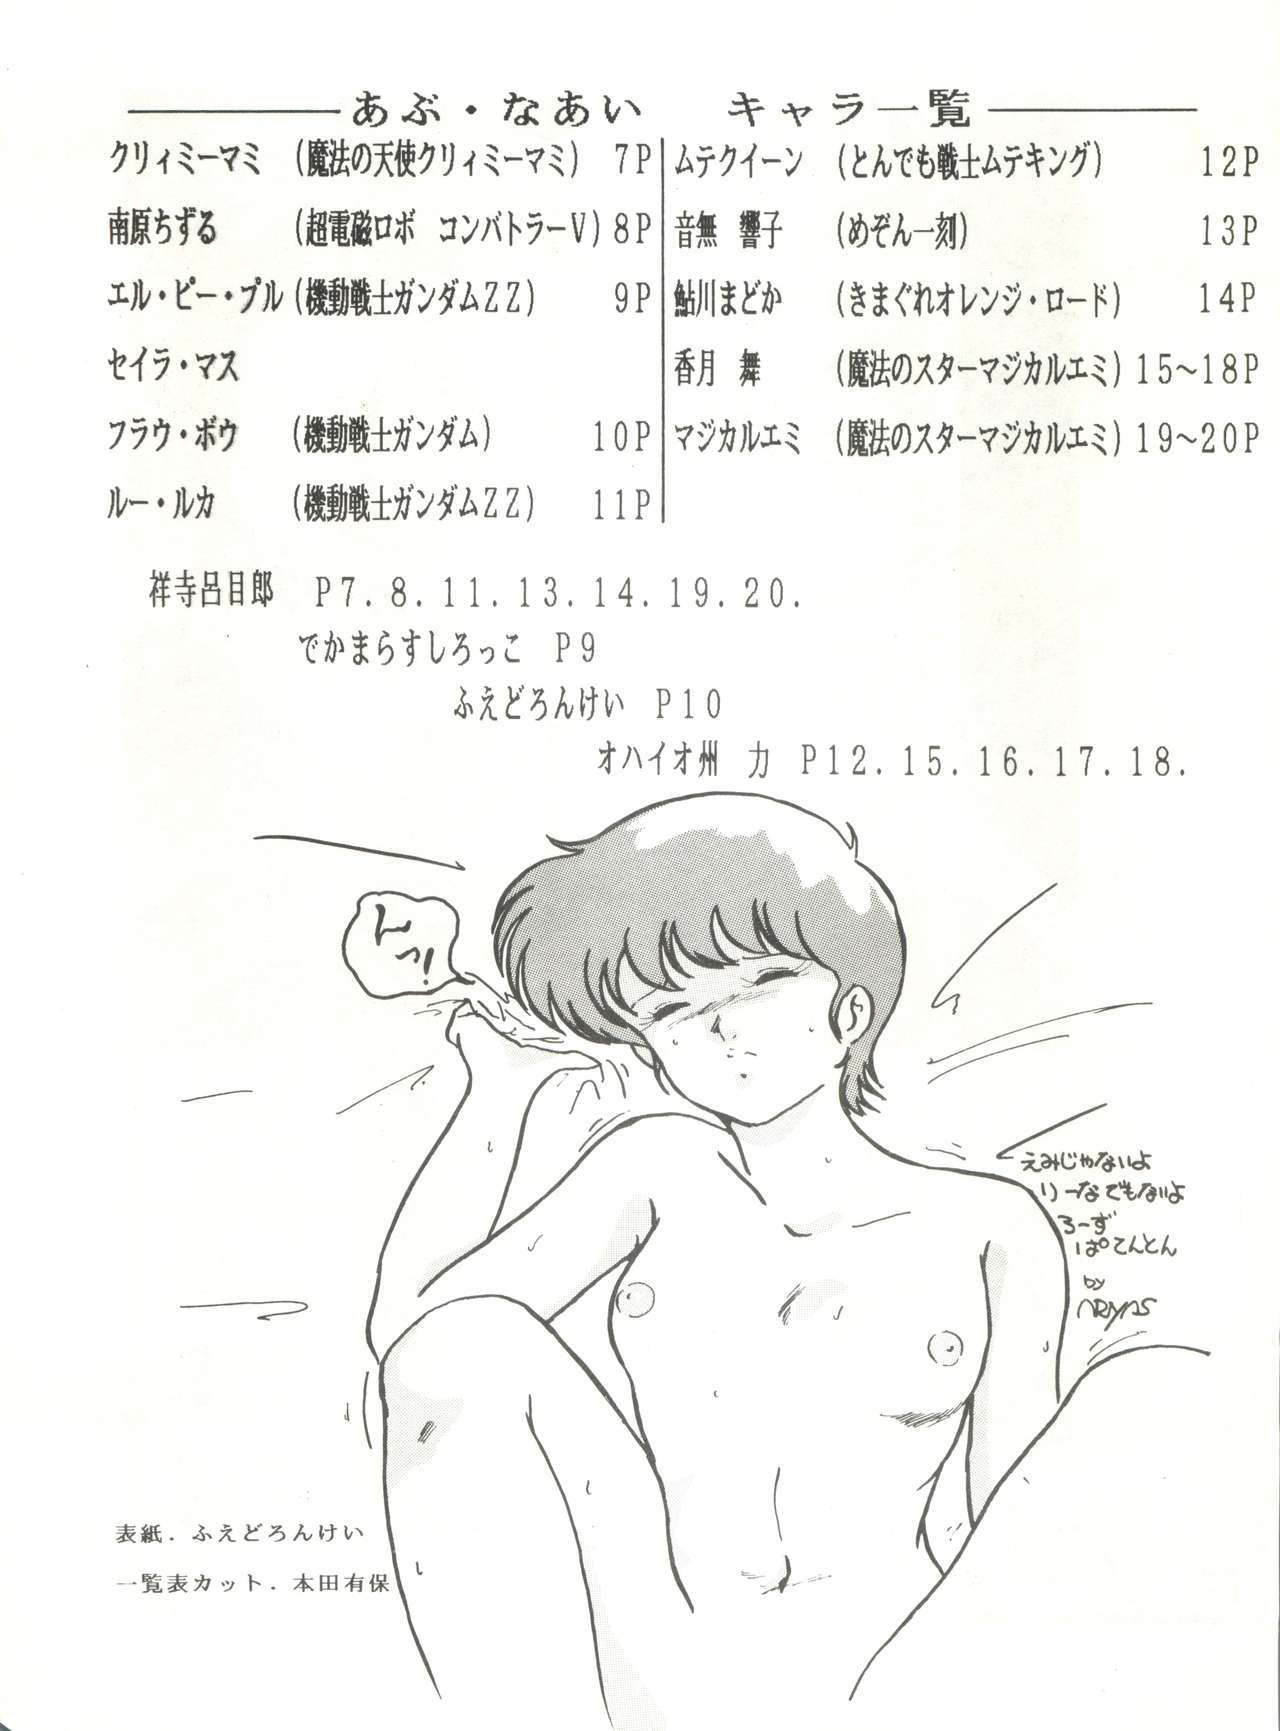 あぶ・なあい　キャラ一覧
クリィミーマミ　(魔法の天使クリィミーマミ)　7P
南原ちずる　(超電磁ロボ　コンバトラーV)　8P
エル・ピー・プル　(機動戦士ガンダムZZ)　9P
セイラ・マス
フラウ・ボウ　(機動戦士ガンダム)　10P
ルー・ルカ　(機動戦士ガンダムZZ)　11P
ムテクイーン　(とんでも戦士ムテキング)　12P
音無　響子　(めぞん一刻)　13P
鮎川まどか　(きまぐれオレンジ・ロード)　14P
香月　舞　(魔法のスターマジカルエミ)　15～18P
マジカルエミ　(魔法のスターマジカルエミ)　19～20P
祥寺呂目郎　P7.8.11.13.14.19.20.
でかまらすしろっこ　P9
ふえどろんけい　P10
オハイオ州　力　P12.15.16.17.18.
んっ!
えみじゃないよ
りーなでもないよ
ろーず
ぱてんとん
by
ARIYAS
表紙．ふえどろんけい
一覧表カット．本田有保